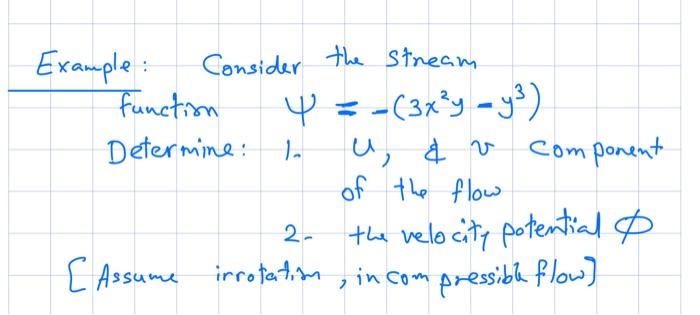 Example: Consider the stream
function ψ = -(3x²y - y³)
Determine: 1. u, & v component
of the flow
2- the velocity potential ϕ
[Assume irrotation, incompressible flow]